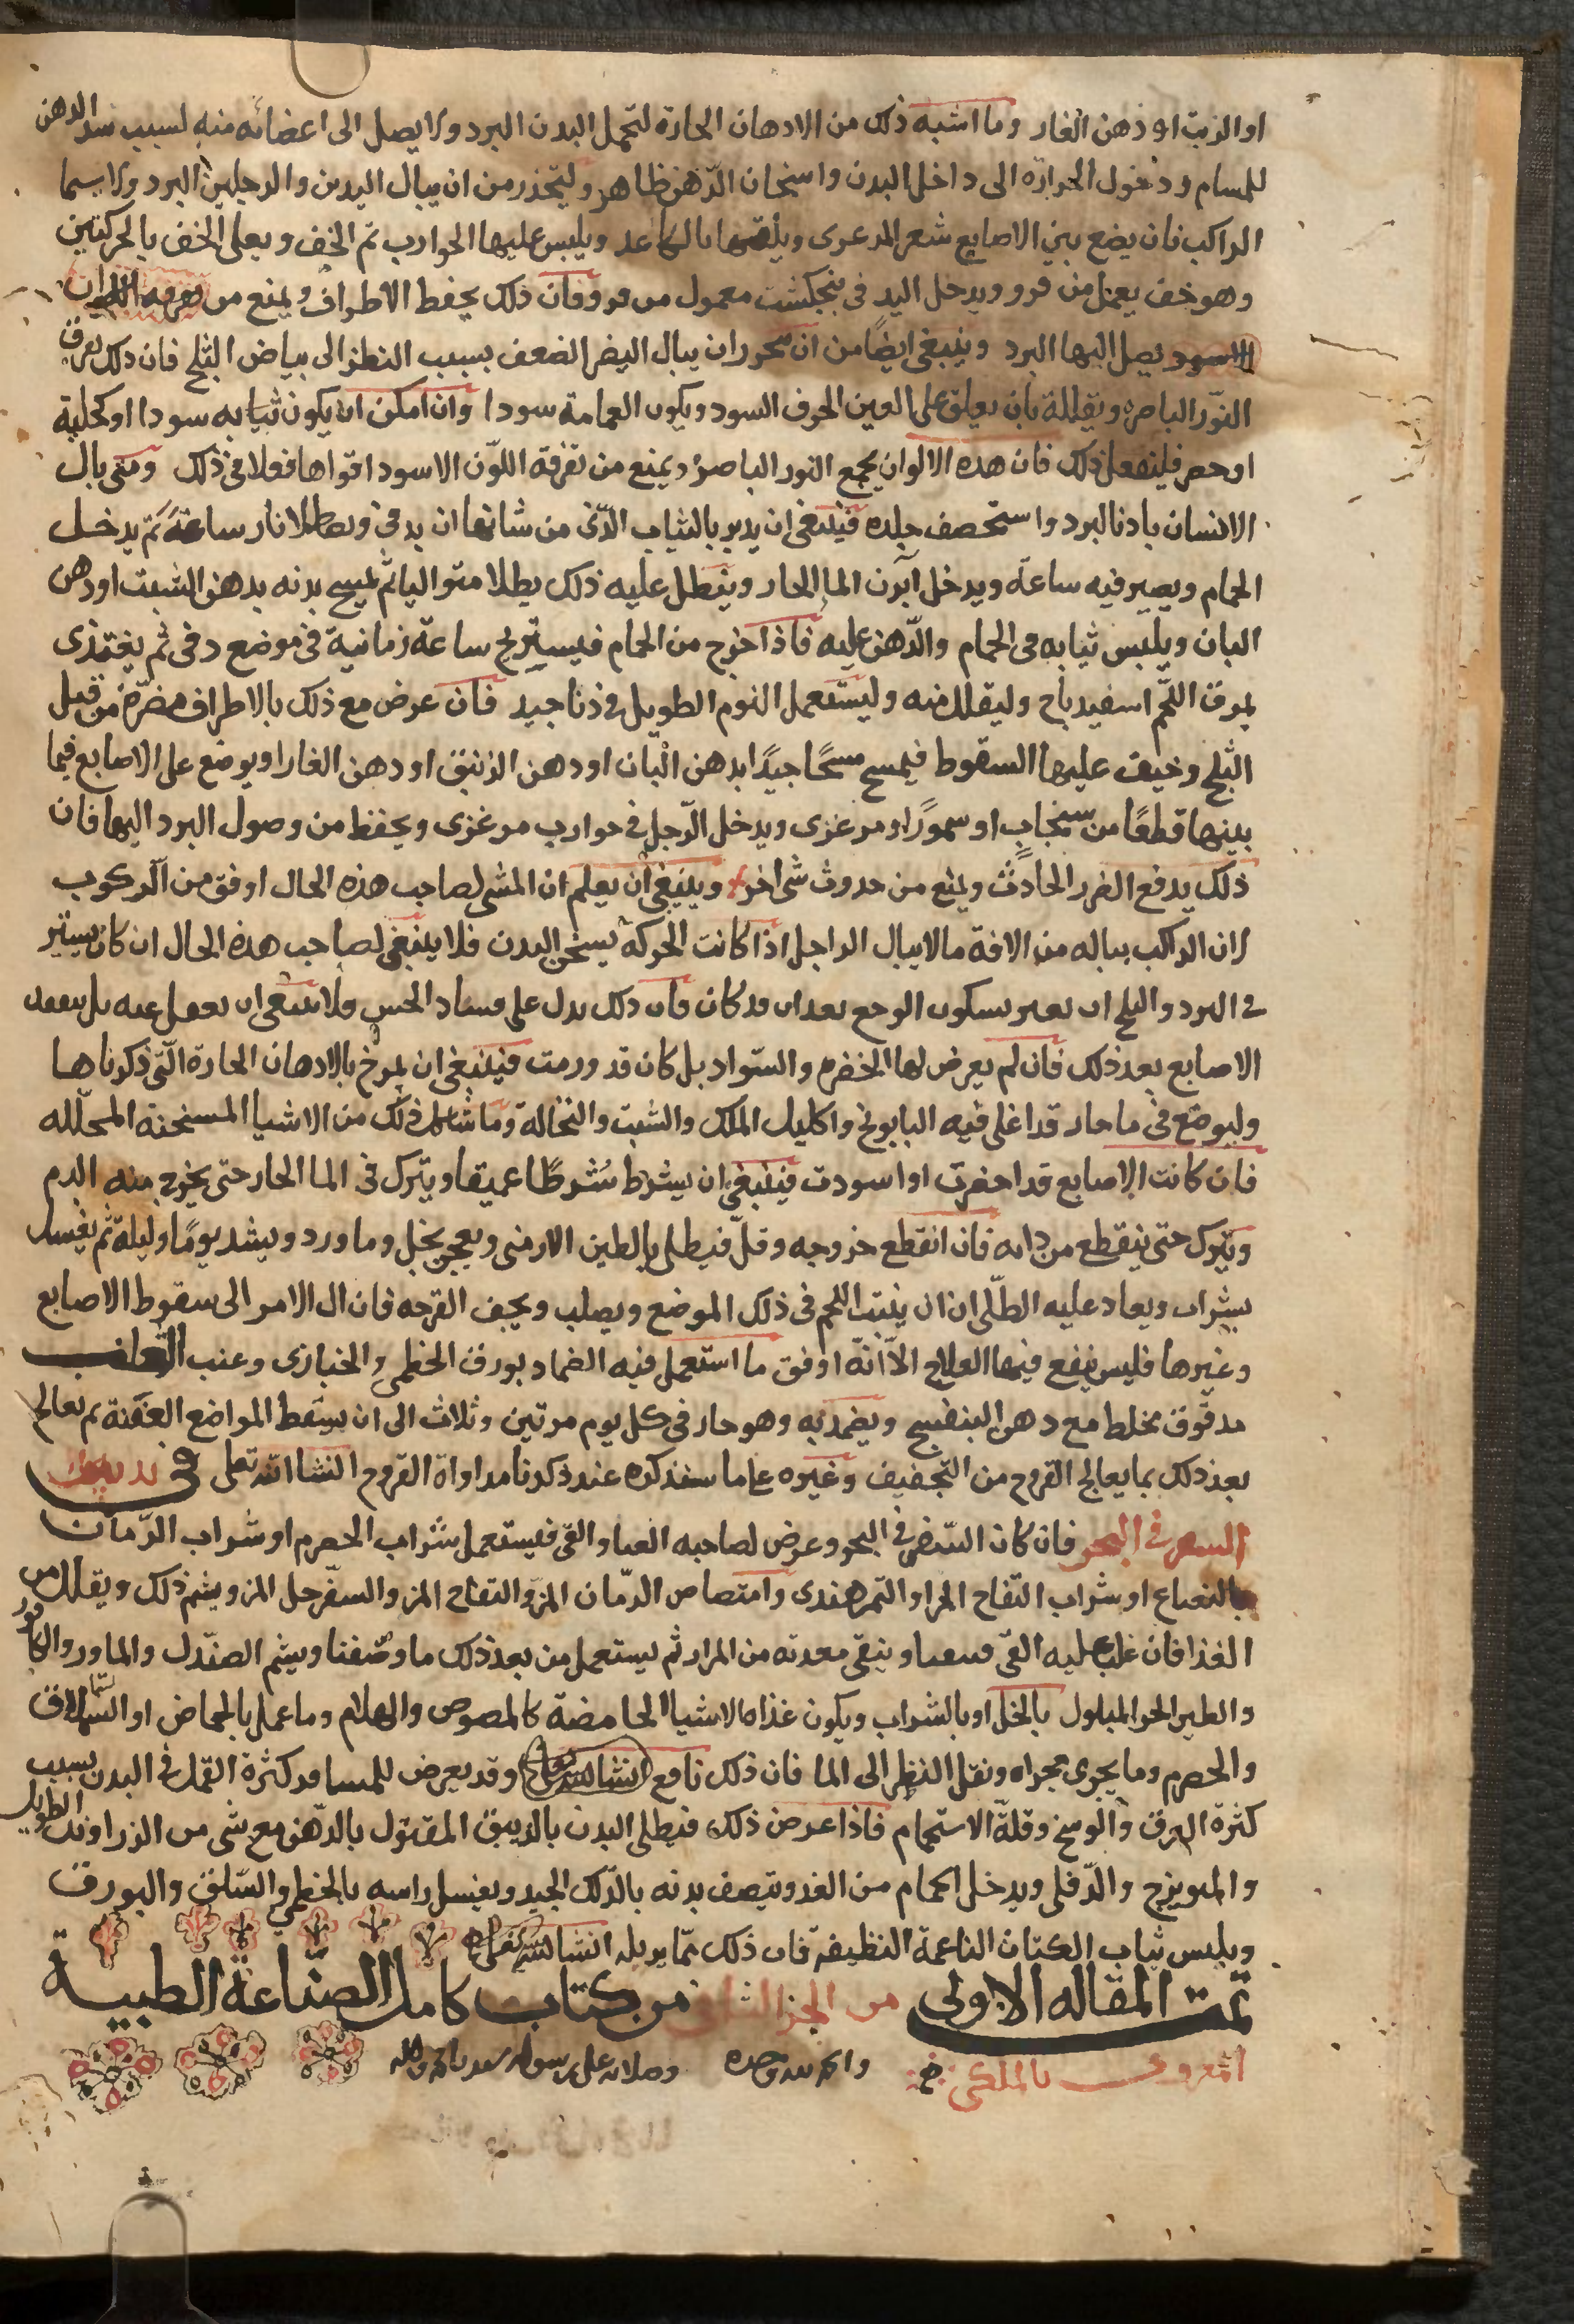 او الزيت او ذهن الغار وما اشبه ذلك من الادهان الحارة لتحمل البدن البرد ولا يصل الى اعضائه منه لسبب سد الدهن
للمسام ودخول الحرارة الى داخل البدن واسخان الدّهن ظاهر وليتحذر من ان ينال اليدين والرجلين البرد ولا سيما
الراكب فان يضع بين الاصابع شعر المرعزى ويلفها بالكاغد ويلبس عليها الجوارب ثم الخف ويعلى الخف بالجركتين
وهو خف يعمل من فرو ويدخل اليد فى بنجكشت معمول من فرو فان ذلك يحفظ الاطراف ويمنع من
الاسود يصل اليها البرد وينبغى ايضًا من ان يحذر ان ينال البصر الضعف بسبب النظر الى بياض الثلج فان ذلك يفرق
النّور الباصر ويقلله بان يعلق على العين الخرق السود ويكون العمامة سودا وان امكن ان يكون ثيابه سودا او كحلية
او خضر فليفعل ذلك فان هذه الالوان يجمع النور الباصر ويمنع من تفرقه اللّون الاسود اقواها فعلا فى ذلك ومتى نال
الانسان باذنا البرد واستحصف جلده فينبغى ان يدبر بالثياب الّتى من شانها ان يدفى ويصطلا نار ساعةً ثمّ يدخل
الحمام ويصير فيه ساعة ويدخل آبزن الما الحار وينطل عليه ذلك يطلا متواليا ثم يمسح بدنه بدهن الشبت او دهن
البان ويلبس ثيابه فى الحمام والدّهن عليه فاذا خرج من الحمام فيستريح ساعة زمانية فى موضع دفى ثم يغتذى
بمرق اللحم اسفيدباج وليقلل منه وليستعمل النوم الطويل فى ذنا جيد فان عرض مع ذلك بالاطراف مضرّة من قبل
الثلج وخيف عليها السقوط فيمسح مسحًا جيدًا بدهن البان او دهن الزنبق او دهن الغار او يوضع على الاصابع فيما
بينها قطعًا من سنجاب او سمور او مرعزى ويدخل الرّجل فى جوارب مرعزى ويحفظ من وصول البرد اليها فان
ذلك يدفع الضرر الحادث ويمنع من حدوث شى اخر وينبغى ان يعلم ان المشى لصاحب هذه الحال اوفق من الركوب
لان الراكب يناله من الافة ما لا ينال الراجل اذا كانت الحركة يسخن البدن فلا ينبغى لصاحب هذه الحال ان كان يسير
فى البرد والثلج ان يغتر بسكون الوجع بعد ان قد كان فان ذلك يدل على فساد الحس ولا ينبغى ان يغفل عنه بل يتفقد
الاصابع بعد ذلك فان لم يعرض لها الخضره والسّواد بل كان قد ورمت فينبغى ان يمرخ بالادهان الحارة الّتى ذكرناها
وليوضع فى ما حار قد اغلى فيه البابونج واكليل الملك والشبت والنخالة وما شاكل ذلك من الاشيا المسخنة المحلّله
فان كانت الاصابع قد اخضرت او اسودت فينبغى ان يشرط شرطًا عميقا ويترك فى الما الحار حتى يخرج منه الدم
ويترك حتى ينقطع من ذاته فان انقطع خروجه وقلّ فيطلى بالطين الارمنى ويعجن بخل وما ورد ويشد يومًا وليلة ثم يغسل
بشراب ويعاد عليه الطّلى ان ان ينبت اللحم فى ذلك الموضع ويصلب ويجف القرحه فان ال الامر الى سقوط الاصابع
وغيرها فليس ينفع فيها العلاج الّا انّه اوفق ما استعمل فيه الضماد بورق الخطمى والخبازى وعنب الثعلب
مدقوق يخلط مع دهن البنفسج ويضمد به وهو حار فى كل يوم مرتين وثلاث الى ان يسقط المواضع العفنة ثم يعالج
بعد ذلك بما يعالج القروح من التجفيف وغيره على ما سنذكره عند ذكرنا مداواة القروح انشا الله تعلى فى تدبير
السفر فى البحر فان كان السّفر فى البحر وعرض لصاحبه الغثى والقى فيستعمل شراب الحصرم او شراب الرّمان
بالنعناع او شراب التّفاح المز او التمر هندى وامتصاص الرّمان المز والتفاح المز والسفرجل المز ويشم ذلك ويقلل من
الغذا فان غلب عليه القى فيتقيا وينقى معدته من المرار ثم يستعمل من بعد ذلك ما وصفنا ويشم الصندل والماورد والكافور
والطين الحر المبلول بالخل او بالشراب ويكون غذاه الاشيا الحامضة كالمصوص والهلام وما عمل بالحماض او السّماق
والحصرم وما يجرى مجراه ونقل النظر الى الما فان ذلك نافع انشا الله تعالى وقد يعرض للمسافر كثرة القمل فى البدن بسبب
كثرة العرق والوسخ وقلّة الاستحمام فاذا عرض ذلك فيطلى البدن بالزيبق المقتول بالدّهن مع شى من الزراوند الطويل
والميويزج والدّفلى ويدخل الحمام من الغد وينصف بدنه بالدّلك الجيد ويغسل راسه بالخطمى والسّلق والبورق
ويلبس ثياب الكتان الناعمة النظيفة فان ذلك ممّا يزيله انشا الله تعالى
تمت المقاله الاولى من الجز الثانى من كتاب كامل الصّناعة الطبية
المعروف بالملكى والحمد لله وحده وصلاته على رسوله